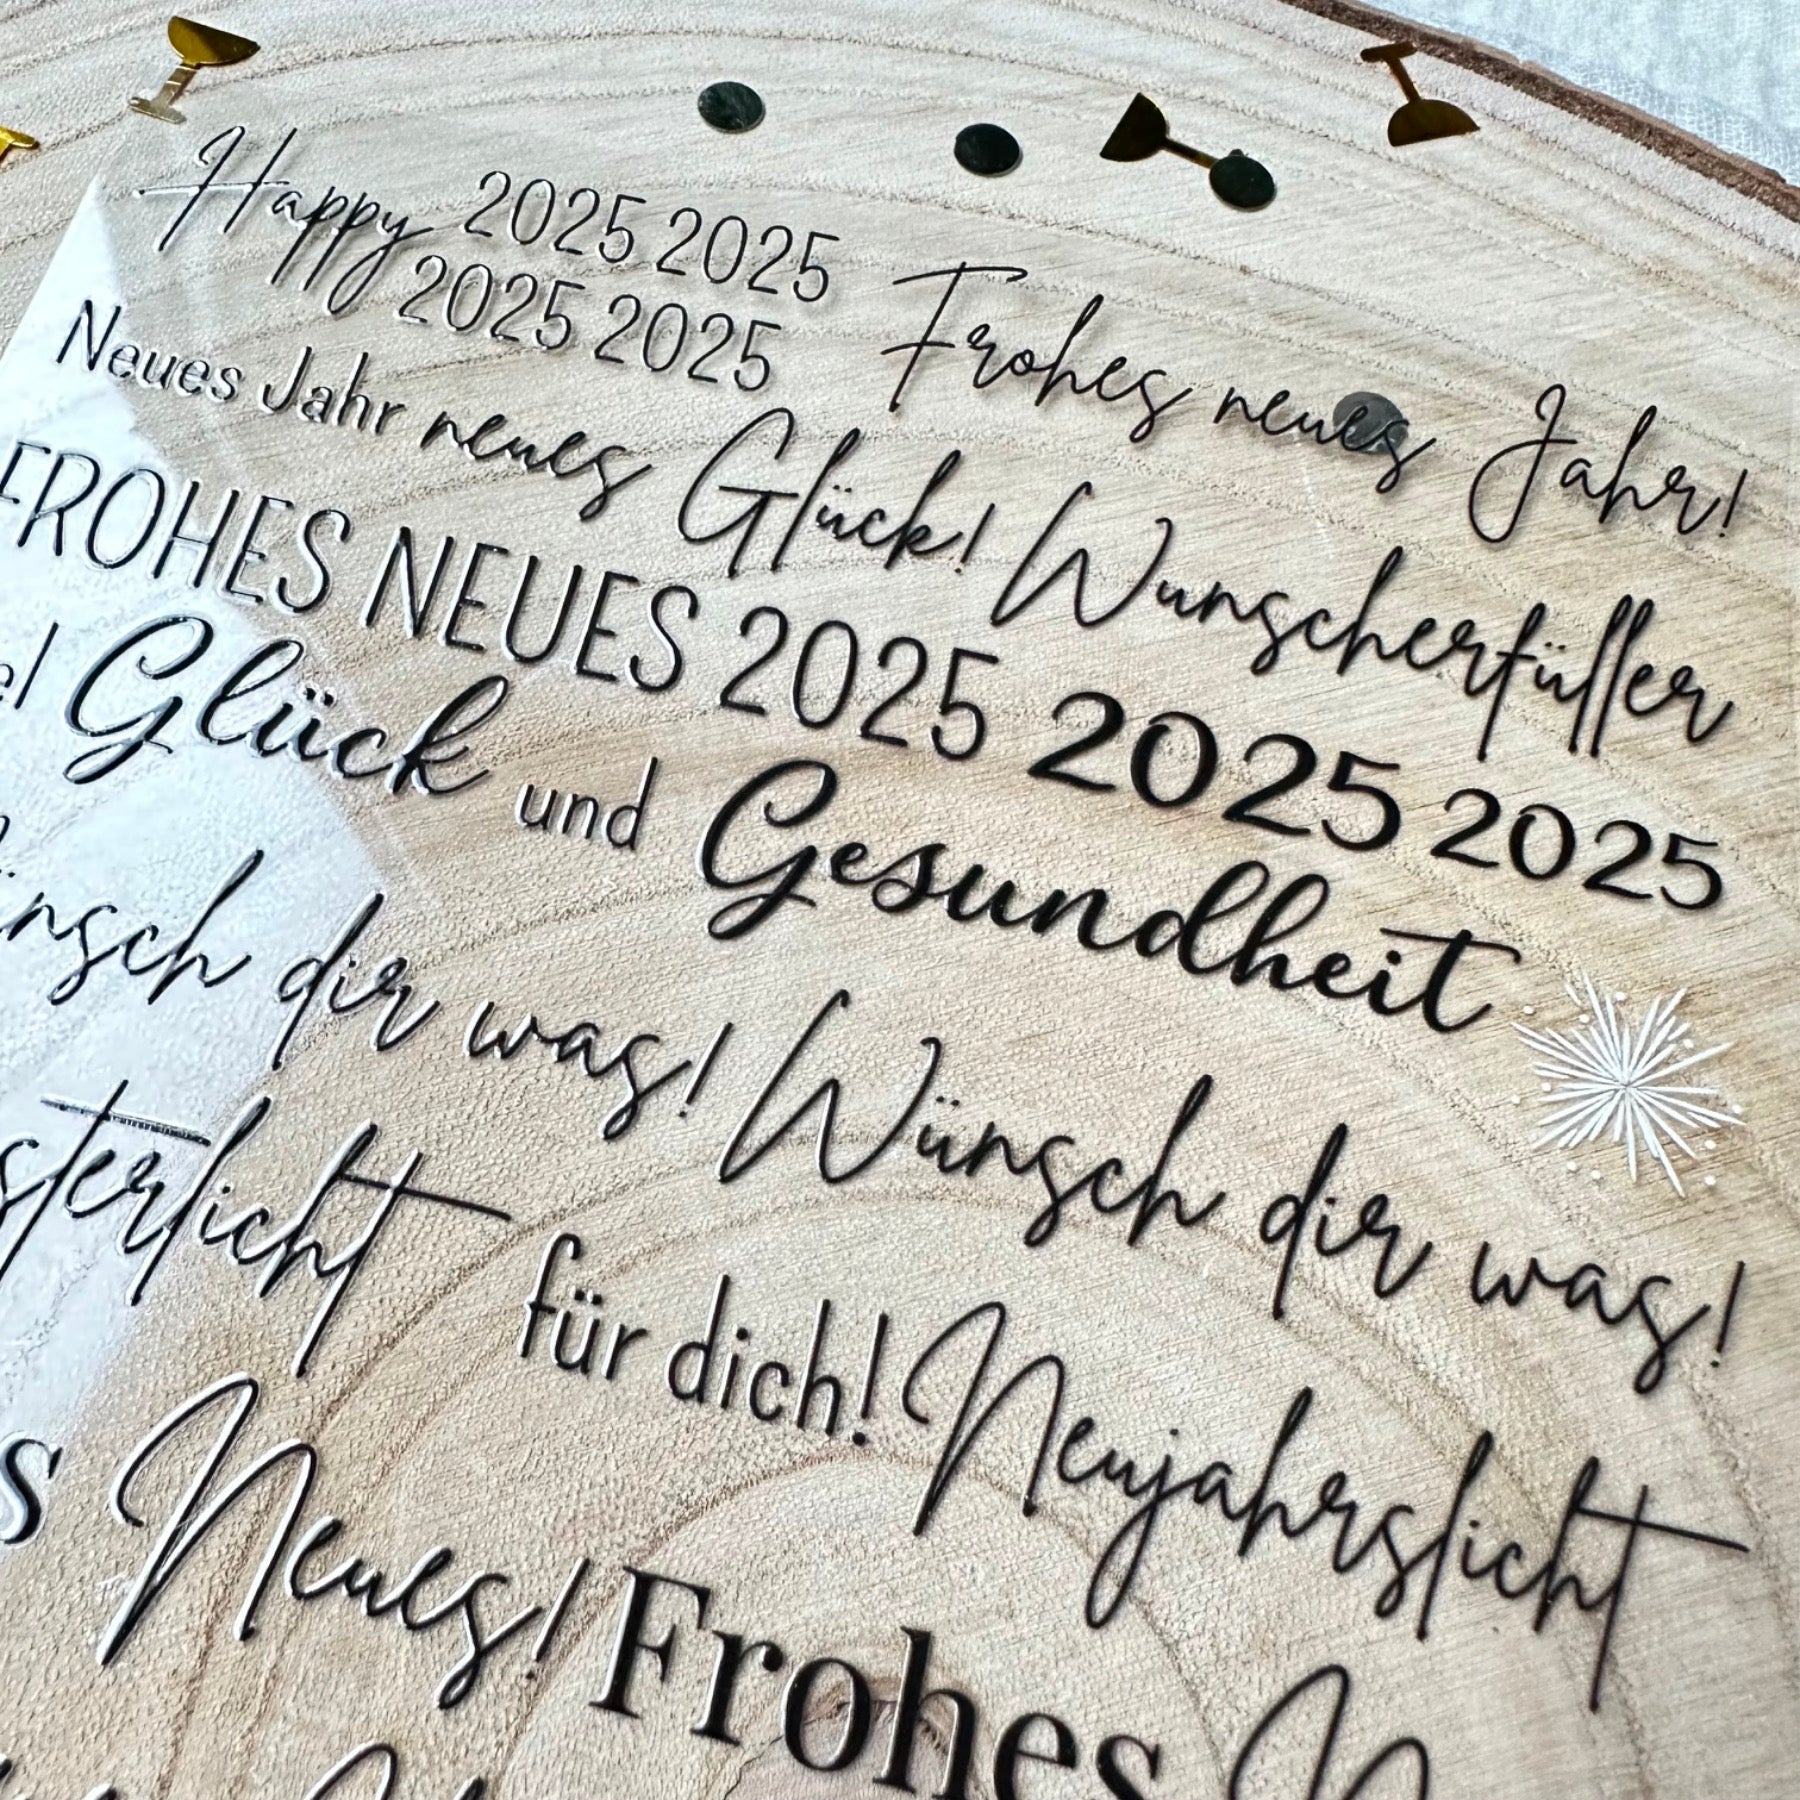 Happy 2025 2025 Frohes neues Jahr!
2025 2025
Neues Jahr neues Glück! Wunscherfüller
FROHES NEUES 2025 2025 2025
Glück und Gesundheit
dir was! Wünsch dir was!
für dich! Neujahrslicht
Neues! Frohes